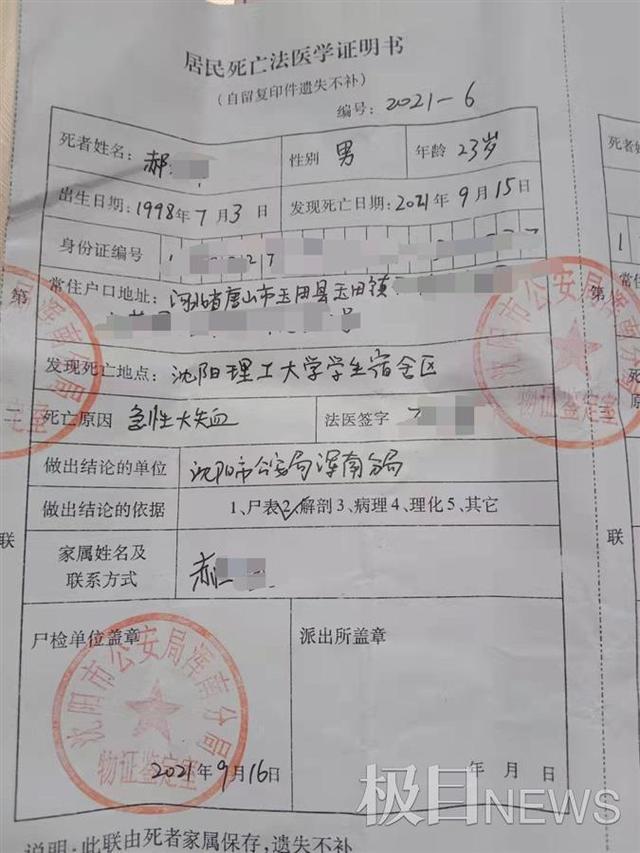 居民死亡法医学证明书
(自留复印件遗失不补)
编号: 2021-6
死者姓名: 郝 性别 男 年龄 23岁
出生日期: 1998年7月3日 发现死亡日期: 2021年9月15日
身份证编号
常住户口地址: 河北省唐山市玉田县玉田镇
号
发现死亡地点: 沈阳理工大学学生宿舍区
死亡原因 急性大失血 法医签字
做出结论的单位 沈阳市公安局浑南分局
做出结论的依据 1、尸表2、解剖3、病理4、理化5、其它
家属姓名及
联系方式 郝
尸检单位盖章 派出所盖章
沈阳市公安局浑南分局
物证鉴定室
2021年9月16日 年 月 日
说明: 此联由死者家属保存,遗失不补
第
二
联
沈阳市公安局浑南分局
物证鉴定室
死者姓
第
联
极目NEWS